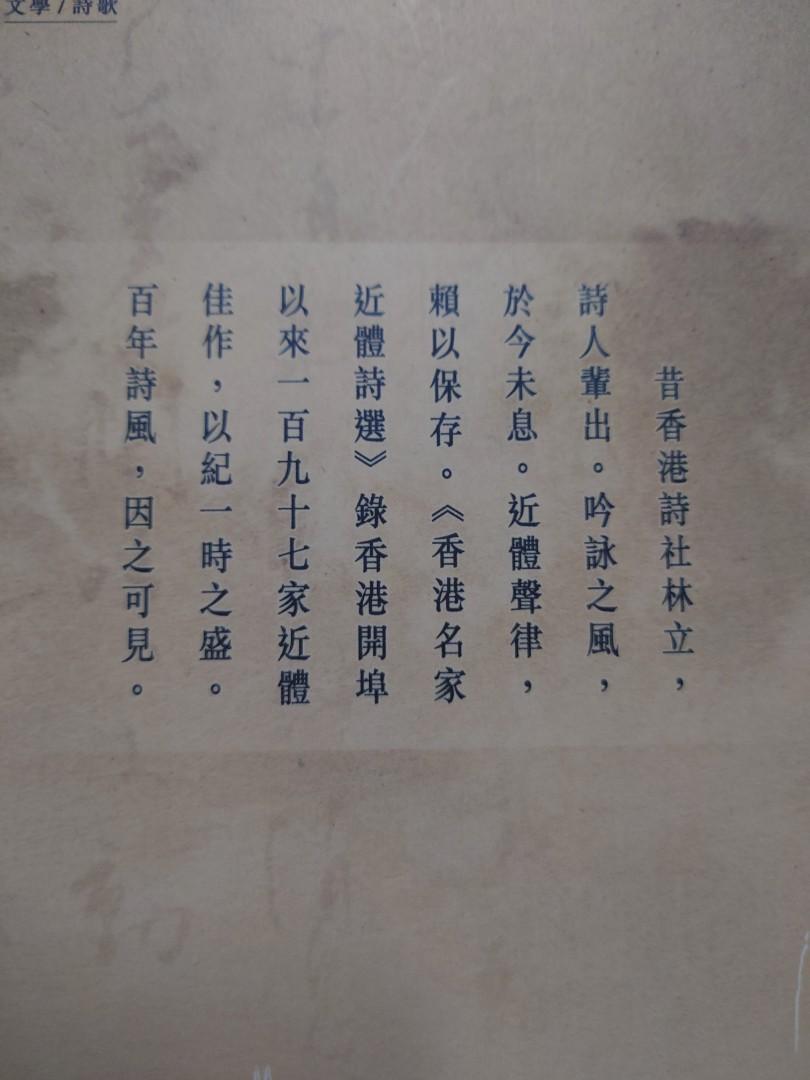 文學/詩歌
昔香港詩社林立，
詩人輩出。吟詠之風，
於今未息。近體聲律，
賴以保存。《香港名家
近體詩選》錄香港開埠
以來一百九十七家近體
佳作，以紀一時之盛。
百年詩風，因之可見。